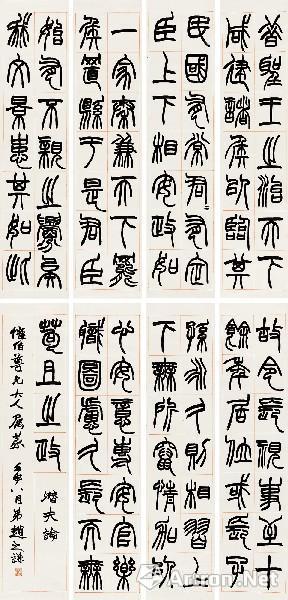 昔聖王之治天下
咸建諸侯以臨其
民國有常君〻有定
臣上下相安政如
一家秦兼天下罷
侯置縣于是君臣
始有不親之釁矣
我文景患其如此
故令長視事至十
餘年居位或長子
孫永久則相習上
下無所竄情加
心安意專安官樂
職圖慮久長而無
苟且之政
潛夫論
伯尊兄大人屬篆
八月弟趙之謙
Artron.Net